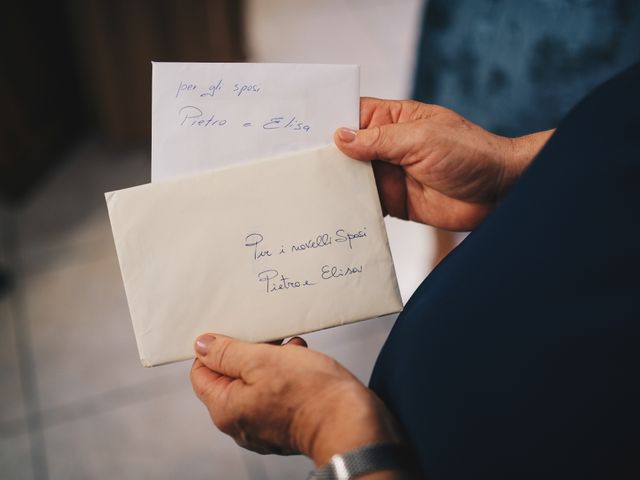 per gli sposi
Pietro e Elisa
Per i novelli Sposi
Pietro e Elisa